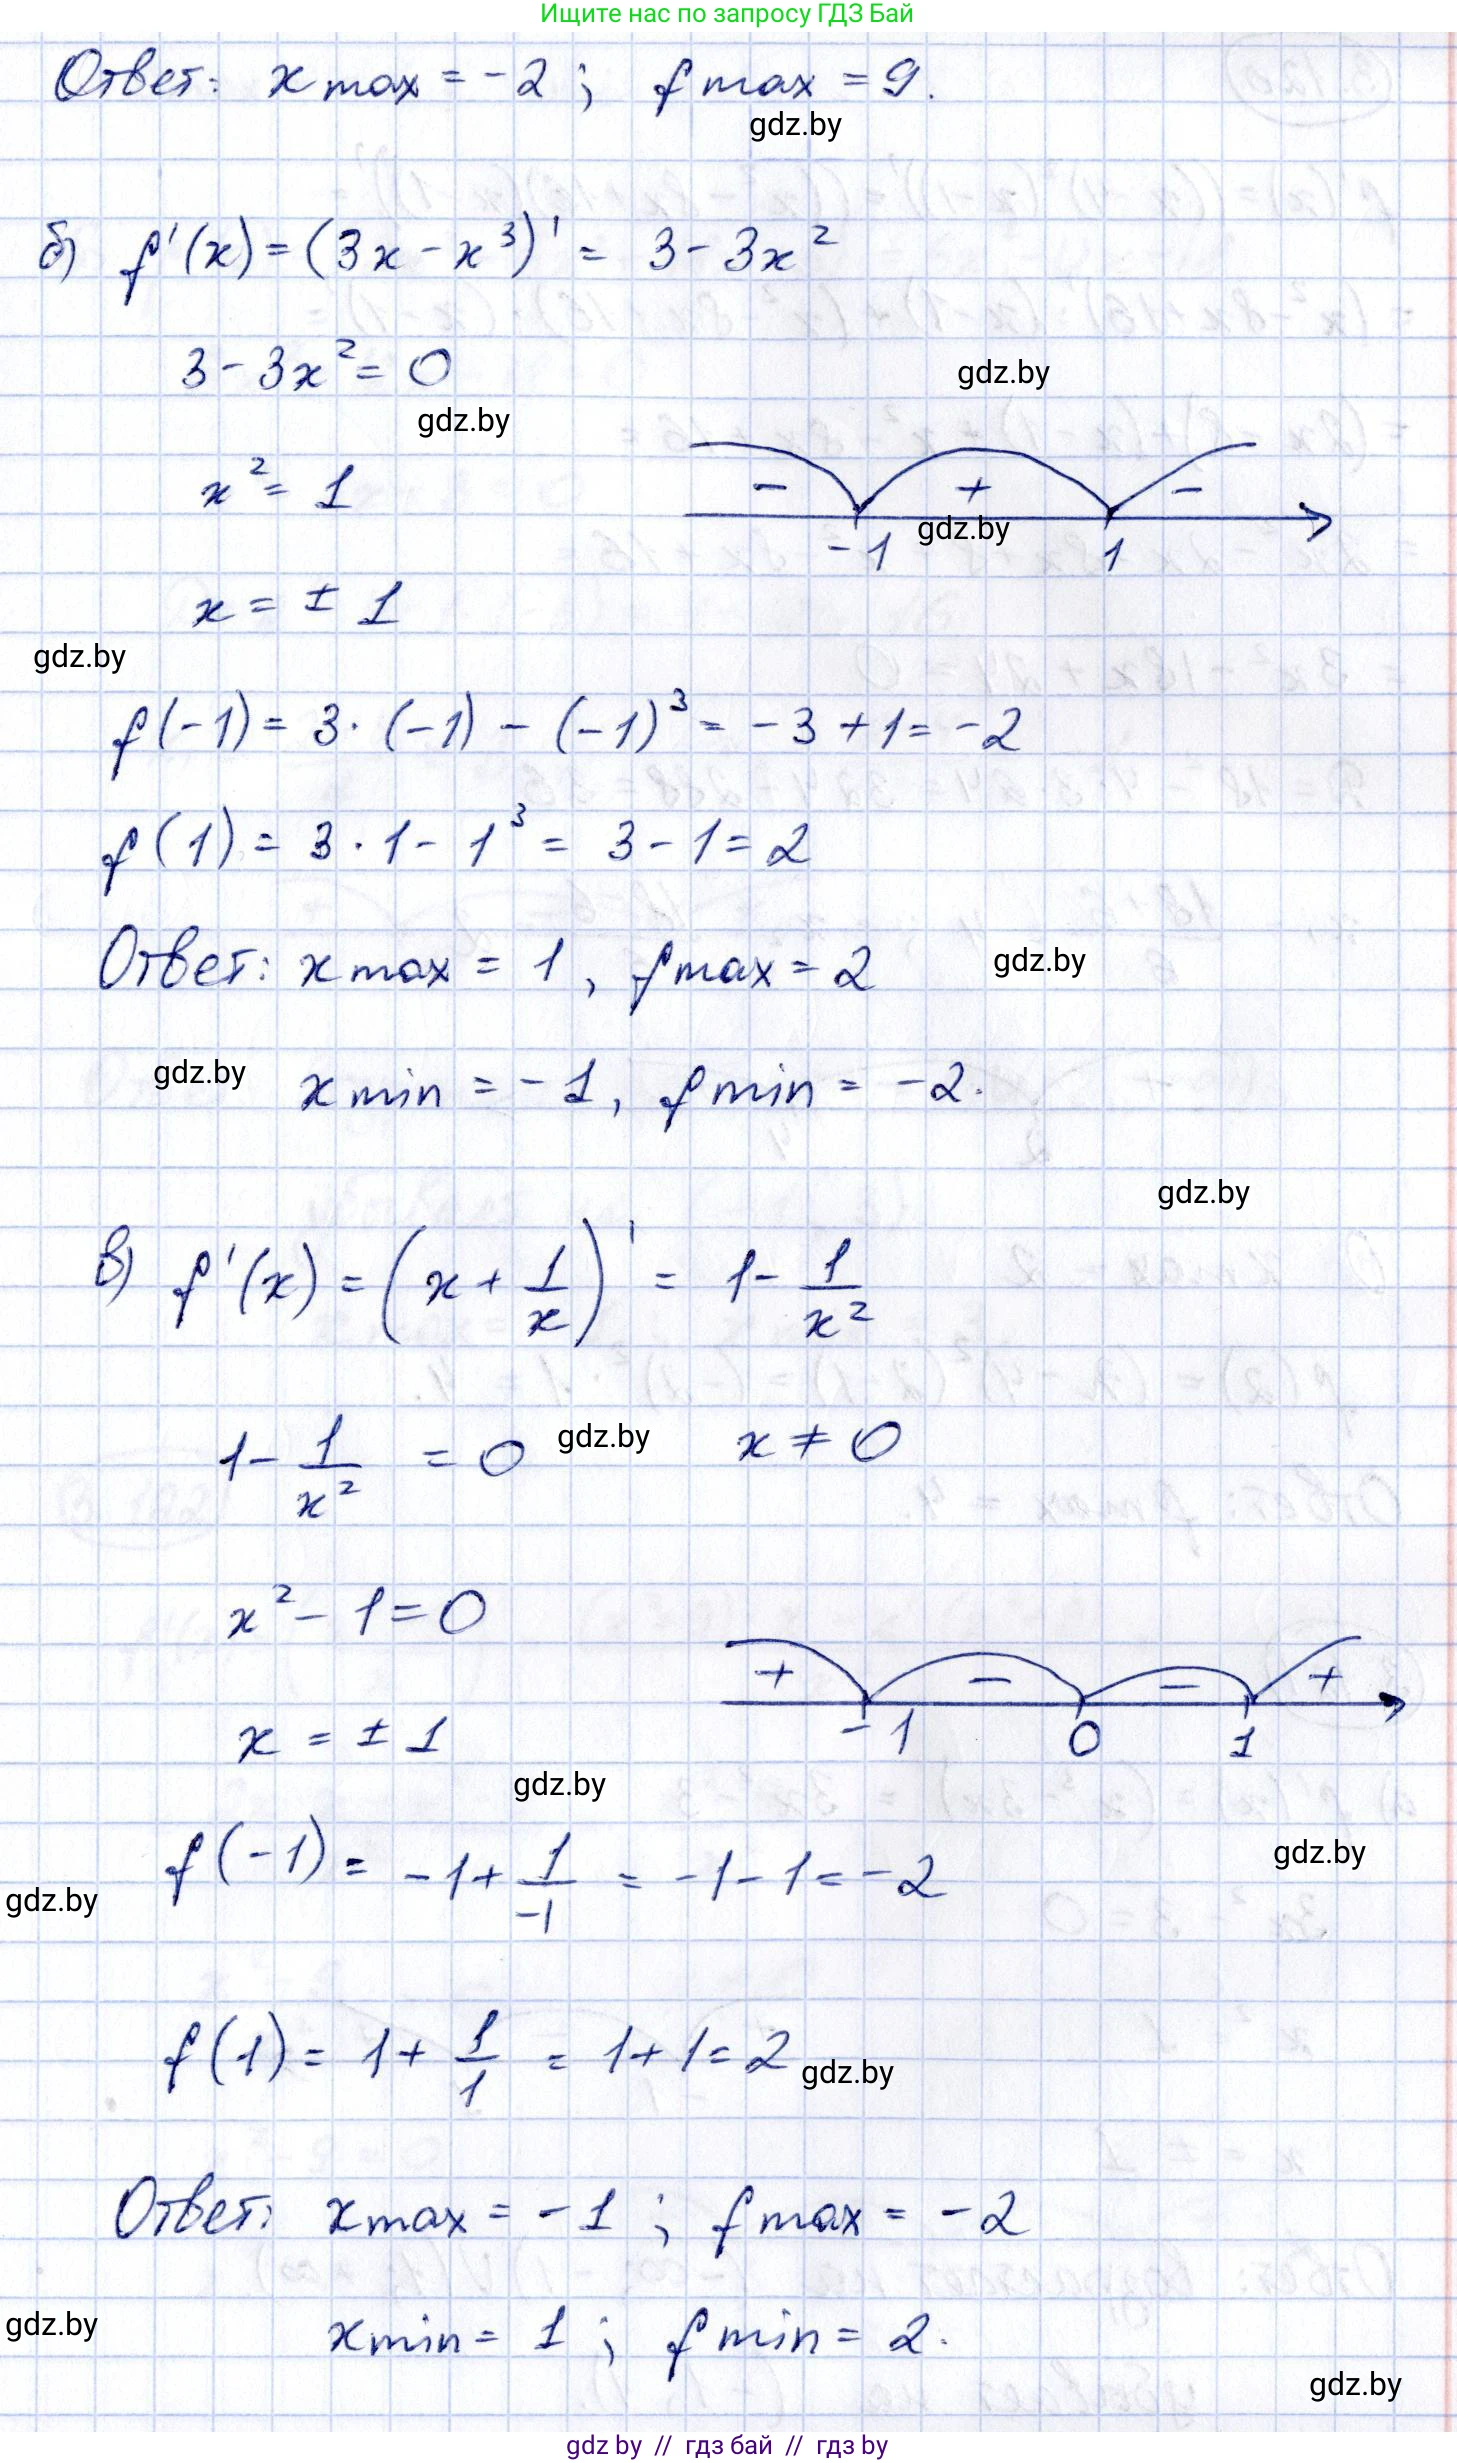 Ищите нас по запросу ГДЗ Бай
Ответ: x max = -2 ; f max = 9.
gdz.by
б) f'(x) = (3x - x³)' = 3 - 3x²
3 - 3x² = 0
gdz.by
gdz.by
x² = 1
- + -
gdz.by
-1 1
x = ± 1
gdz.by
f(-1) = 3 · (-1) - (-1)³ = -3 + 1 = -2
f(1) = 3 · 1 - 1³ = 3 - 1 = 2
Ответ: x max = 1 , f max = 2
gdz.by
gdz.by
x min = -1 , f min = -2.
gdz.by
в) f'(x) = (x + 1/x)' = 1 - 1/x²
1 - 1/x² = 0
gdz.by
x ≠ 0
x² - 1 = 0
+ - - +
-1 0 1
x = ± 1
gdz.by
gdz.by
f(-1) = -1 + 1/-1 = -1 - 1 = -2
gdz.by
f(1) = 1 + 1/1 = 1 + 1 = 2
gdz.by
Ответ: x max = -1 ; f max = -2
gdz.by
x min = 1 ; f min = 2.
gdz.by
gdz by // гдз бай // гдз by